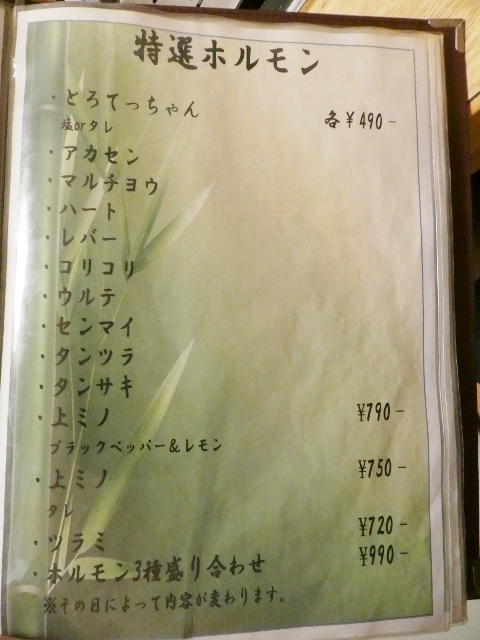 特選ホルモン
・とろてっちゃん 各¥490-
塩orタレ
・アカセン
・マルチョウ
・ハート
・レバー
・コリコリ
・ウルテ
・センマイ
・タンツラ
・タンサキ
・上ミノ ¥790-
ブラックペッパー&レモン
・上ミノ ¥750-
タレ
・ツラミ ¥720-
・ホルモン3種盛り合わせ ¥990-
※その日によって内容が変わります。